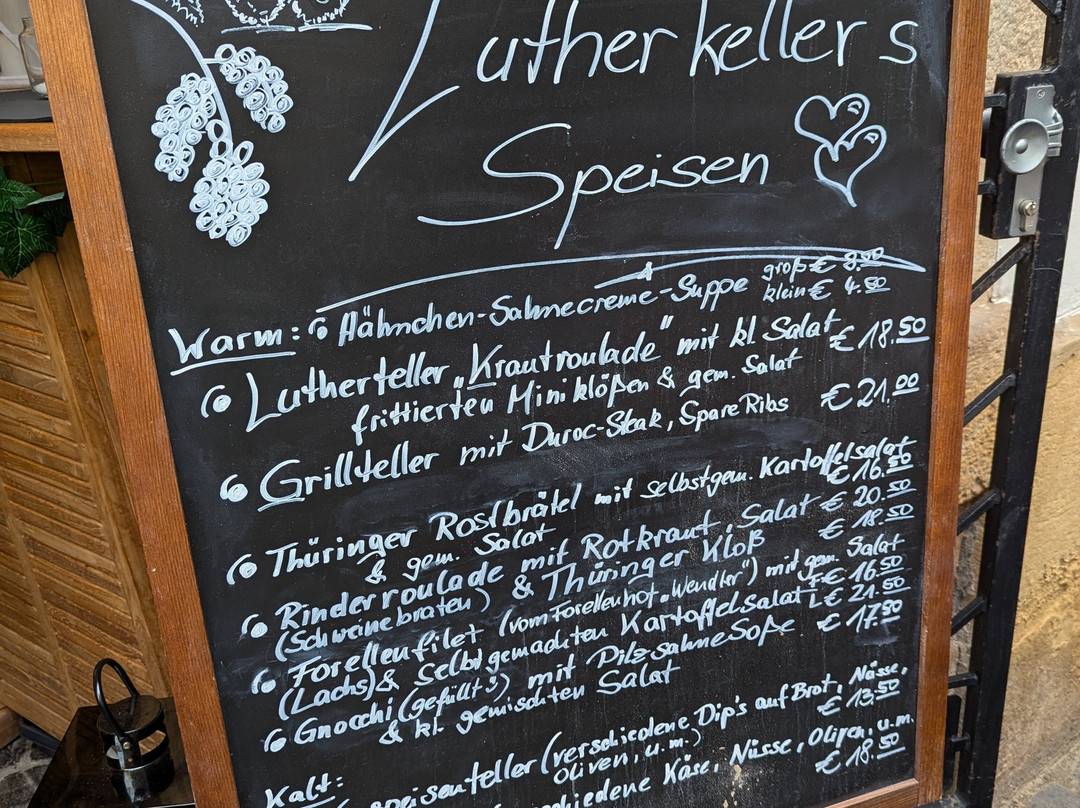 Lutherkellers
Speisen
Warm: Hähnchen-Sahnecreme-Suppe groß € 8.90
klein € 4.50
Lutherteller „Krautroulade" mit kl. Salat € 18.50
frittierten Miniklößen & gem. Salat
Grillteller mit Duroc-Steak, Spare Ribs € 21.00
Thüringer Rostbrätel mit selbstgem. Kartoffelsalat
& gem. Salat € 16.50
Rinderroulade mit Rotkraut, Salat € 20.50
(Schweinebraten) & Thüringer Kloß € 18.50
Forellenfilet (vom Forellenhof „Wendler") mit gem. Salat
F€ 16.50
(Lachs) & Selbstgemachten Kartoffelsalat L€ 21.50
Gnocchi (gefüllt) mit Pilzsahnesoße € 17.50
& kl. gemischten Salat
Kalt:
speisenteller (verschiedene Dip's auf Brot, Nüsse,
Oliven, u.m.) € 13.50
schiedene Käse, Nüsse, Oliven, u.m.
€ 18.50